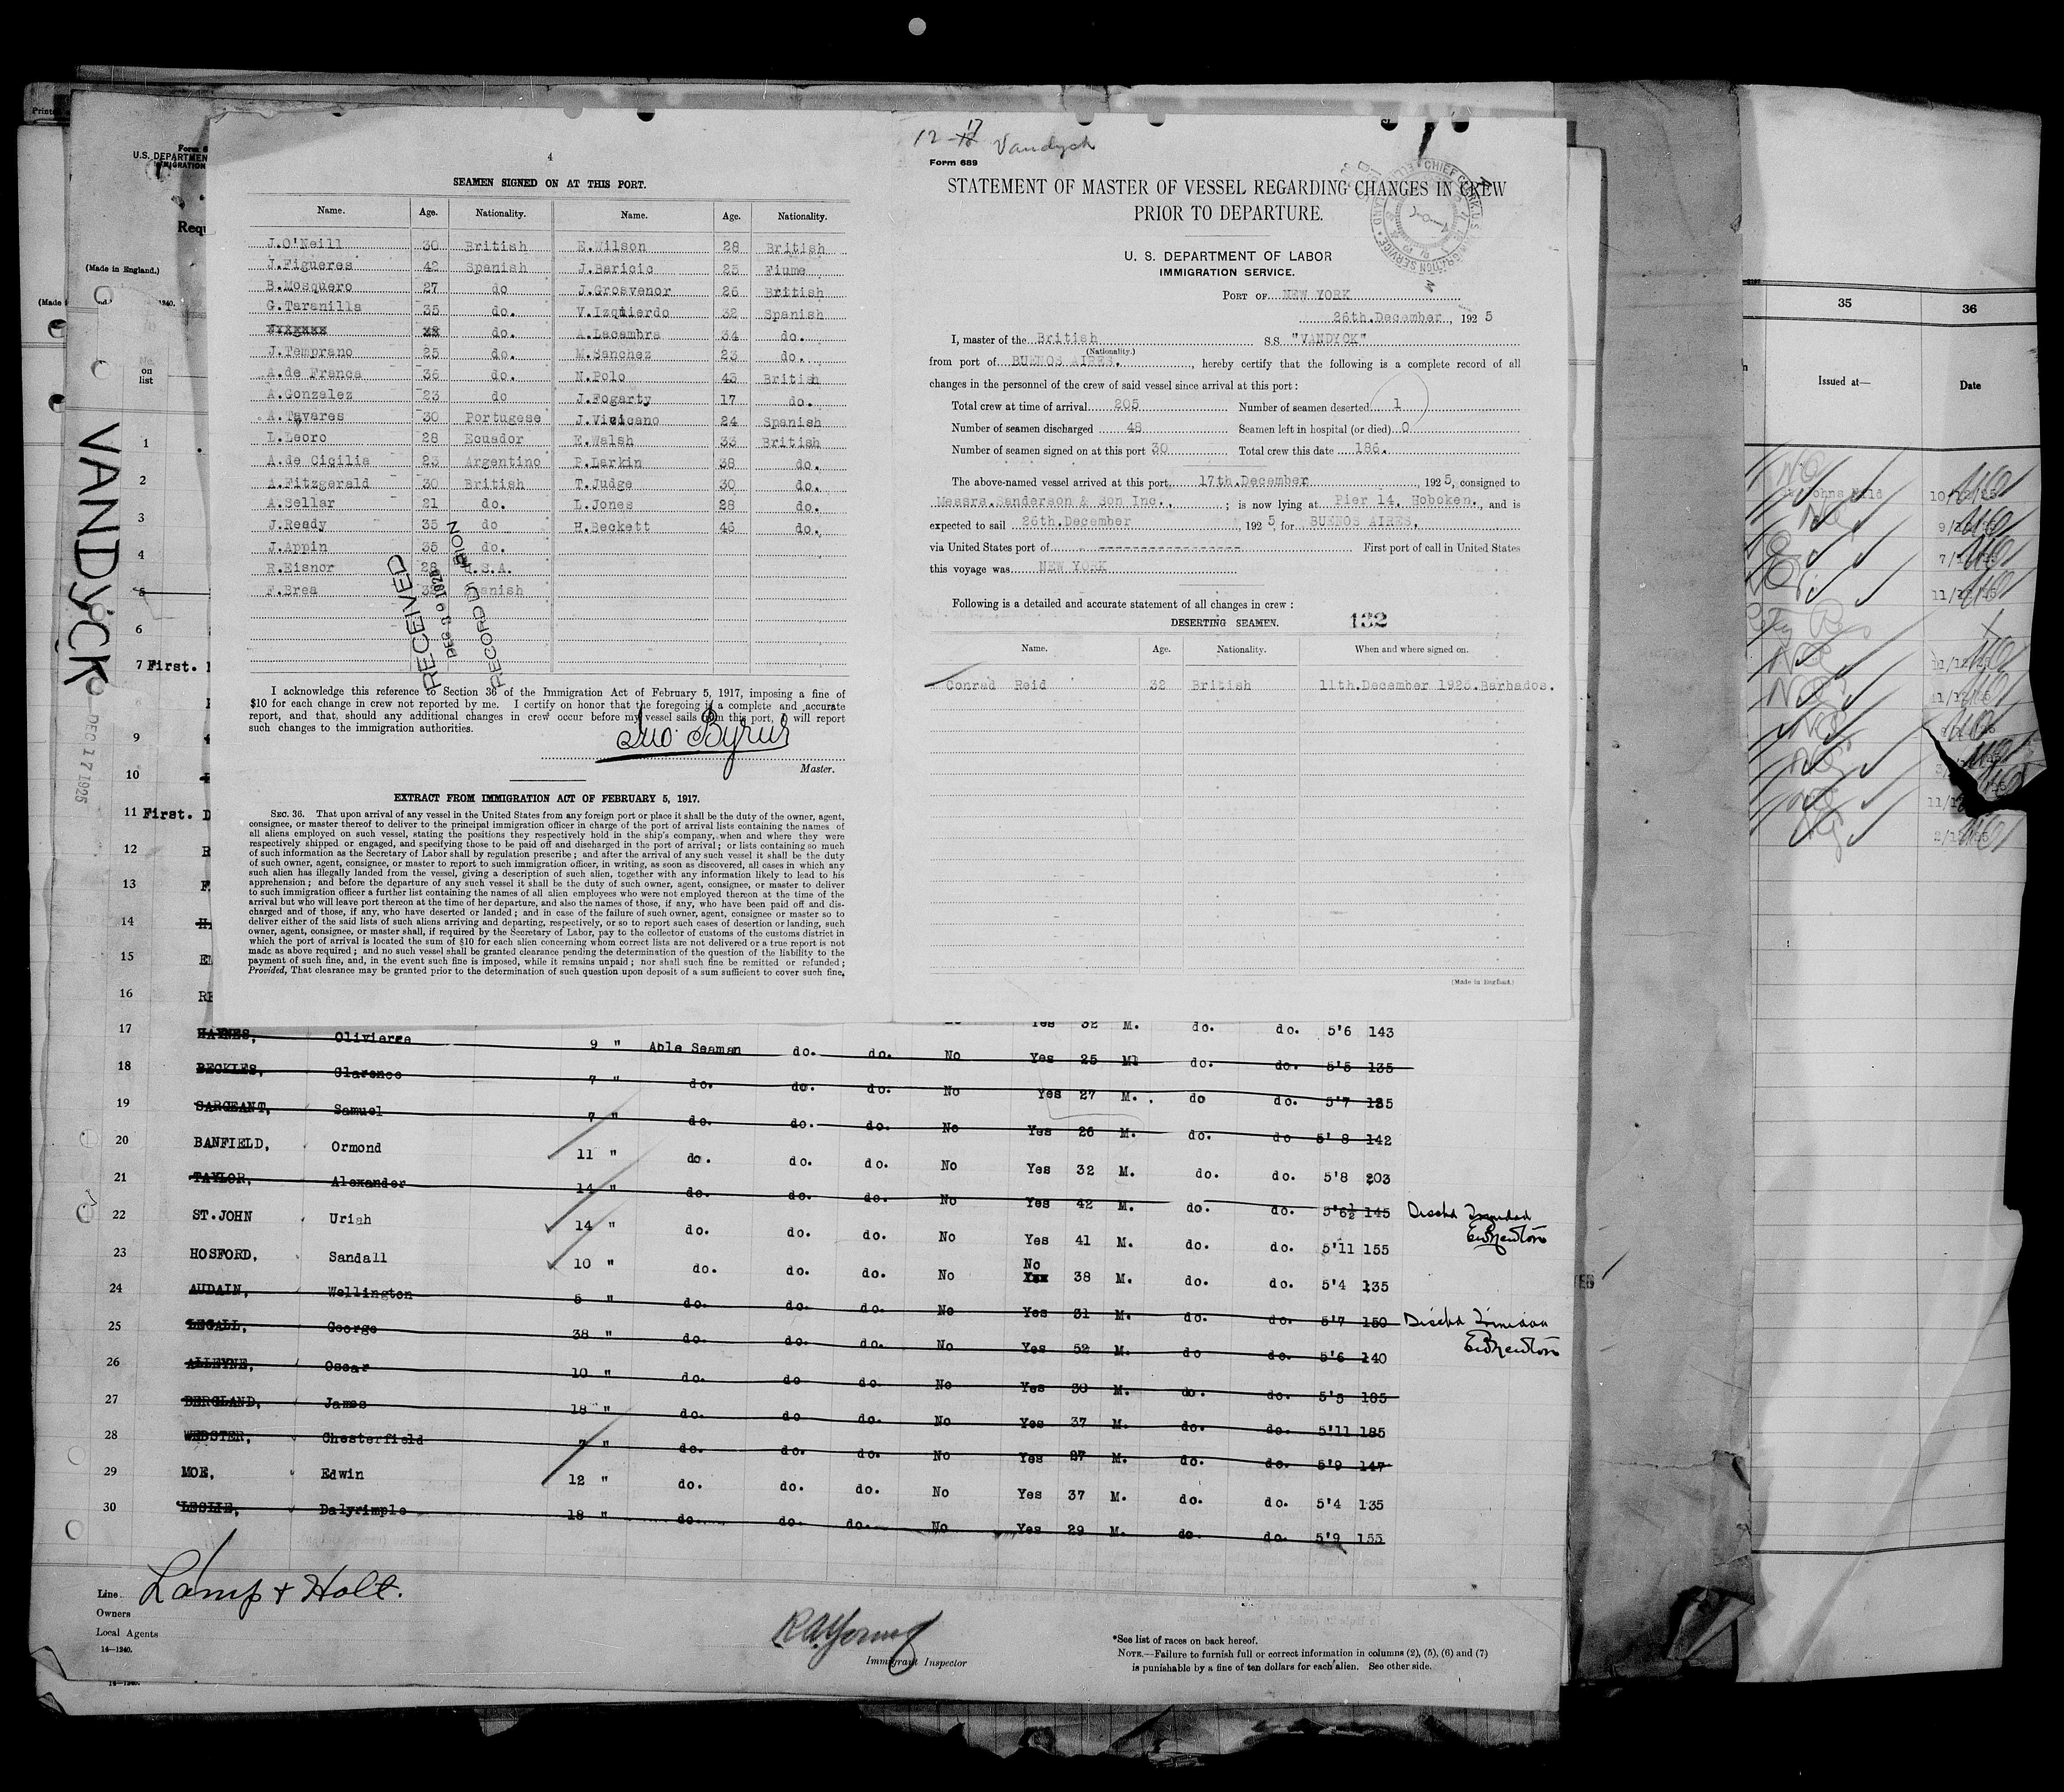 4
SEAMEN SIGNED ON AT THIS PORT.
Name. Age. Nationality. Name. Age. Nationality.
J.O'Neill 30 British E.Wilson 28 British
J.Figueres 42 Spanish J.Baricic 25 Fiume
B.Mosquero 27 do J.Grosvenor 26 British
G.Taranilla 35 do. V.Izquierdo 32 Spanish
do. A.Lacambra 34 do.
J.Temprano 25 do. M.Sanchez 23 do.
A.de Franca 36 do. N.Polo 43 British
A.Gonzelez 23 do J.Fogarty 17 do.
A.Tavares 30 Portugese J.Vicicano 24 Spanish
L.Leoro 28 Ecuador E.Walsh 33 British
A.de Cicilia 23 Argentino P.Larkin 38 do.
A.Fitzgerald 30 British T.Judge 30 do.
A.Sellar 21 do. L.Jones 28 do.
J.Ready 35 do H.Beckett 46 do.
J.Appin 35 do.
R.Eisnor 28 .S.A.
F.Brea Spanish
RECEIVED
DEC 1925
RECORD DIVISION
I acknowledge this reference to Section 36 of the Immigration Act of February 5, 1917, imposing a fine of
$10 for each change in crew not reported by me. I certify on honor that the foregoing is a complete and accurate
report, and that, should any additional changes in crew occur before my vessel sails from this port, I will report
such changes to the immigration authorities.
Jno. Byrne
Master.
EXTRACT FROM IMMIGRATION ACT OF FEBRUARY 5, 1917.
SEC. 36. That upon arrival of any vessel in the United States from any foreign port or place it shall be the duty of the owner, agent,
consignee, or master thereof to deliver to the principal immigration officer in charge of the port of arrival lists containing the names of
all aliens employed on such vessel, stating the positions they respectively hold in the ship's company, when and where they were
respectively shipped or engaged, and specifying those to be paid off and discharged in the port of arrival; or lists containing so much
of such information as the Secretary of Labor shall by regulation prescribe; and after the arrival of any such vessel it shall be the duty
of such owner, agent, consignee, or master to report to such immigration officer, in writing, as soon as discovered, all cases in which any
such alien has illegally landed from the vessel, giving a description of such alien, together with any information likely to lead to his
apprehension; and before the departure of any such vessel it shall be the duty of such owner, agent, consignee, or master to deliver
to such immigration officer a further list containing the names of all alien employees who were not employed thereon at the time of the
arrival but who will leave port thereon at the time of her departure, and also the names of those, if any, who have been paid off and dis-
charged and of those, if any, who have deserted or landed; and in case of the failure of such owner, agent, consignee or master so to
deliver either of the said lists of such aliens arriving and departing, respectively, or so to report such cases of desertion or landing, such
owner, agent, consignee, or master shall, if required by the Secretary of Labor, pay to the collector of customs of the customs district in
which the port of arrival is located the sum of $10 for each alien concerning whom correct lists are not delivered or a true report is not
made as above required; and no such vessel shall be granted clearance pending the determination of the question of the liability to the
payment of such fine, and, in the event such fine is imposed, while it remains unpaid; nor shall such fine be remitted or refunded;
Provided, That clearance may be granted prior to the determination of such question upon deposit of a sum sufficient to cover such fine,
12-17 Vandyck
Form 689
STATEMENT OF MASTER OF VESSEL REGARDING CHANGES IN CREW
PRIOR TO DEPARTURE.
U. S. DEPARTMENT OF LABOR
IMMIGRATION SERVICE.
PORT OF NEW YORK
26th.December, 1925
I, master of the British S.S "VANDYCK"
(Nationality.)
from port of BUENOS AIRES., hereby certify that the following is a complete record of all
changes in the personnel of the crew of said vessel since arrival at this port:
Total crew at time of arrival 205 Number of seamen deserted 1
Number of seamen discharged 48 Seamen left in hospital (or died) 0
Number of seamen signed on at this port 30 Total crew this date 186.
The above-named vessel arrived at this port 17th.December, 1925, consigned to
Messrs.Sanderson & Son Inc.,; is now lying at Pier 14. Hoboken., and is
expected to sail 26th.December, 1925 for BUENOS AIRES.
via United States port of ------------------ First port of call in United States
this voyage was NEW YORK
Following is a detailed and accurate statement of all changes in crew:
DESERTING SEAMEN. 132
Name. Age. Nationality. When and where signed on.
Conrad Reid 32 British 11th.December 1925.Barbados.
(Made in England.)
U.S. DEPARTMEN
(Made in England.)
No. on list
VANDYCK
DEC 17 1925
1
2
3
4
5
6
7 First.
9
10
11 First. D
12 R
13 F
14 H
15 E
16 RE
Yes 32 M. do. do. 5'6 143
17 HAYNES, Olivierre 9 " Able Seaman do. do. No Yes 25 M do. do. 5'5 135
18 BECKLES, Clarence 7 " do. do. do. No Yes 27 M. do do. 5'7 135
19 SARGEANT, Samuel 7 " do. do. do. No Yes 26 M. do. do 5'8 142
20 BANFIELD, Ormond 11 " do. do. do. No Yes 32 M. do. do. 5'8 203
21 TAYLOR, Alexander 14 " do. do. do. No Yes 42 M. do. do. 5'6½ 145 Dischd Trinidad
22 ST.JOHN Uriah 14 " do. do. do. No Yes 41 M. do. do. 5'11 155
23 HOSFORD, Sandall 10 " do. do. do. No No 38 M. do. do. 5'4 135
24 AUDAIN, Wellington 5 " do. do. do. No Yes 31 M. do. do. 5'7 150 Dischd Trinidad
25 LEGALL, George 38 " do. do. do. No Yes 52 M. do do. 5'6 140
26 ALLEYNE, Oscar 10 " do. do do. No Yes 30 M. do. do. 5'5 185
27 BERGLAND, James 18 " do. do do. No Yes 37 M. do. do. 5'11 185
28 WEBSTER, Chesterfield 7 " do. do. do. No Yes 27 M. do. do. 5'9 147
29 MOE, Edwin 12 " do. do. do. No Yes 37 M. do. do. 5'4 135
30 LESLIE, Dalyrimple 18 " do. do. do. No Yes 29 M. do. do. 5'9 155
Line Lamp & Holt.
Owners
Local Agents
14—1240.
R.A. Young
Immigrant Inspector
*See list of races on back hereof.
NOTE.—Failure to furnish full or correct information in columns (2), (5), (6) and (7)
is punishable by a fine of ten dollars for each alien. See other side.
35 36
Issued at— Date